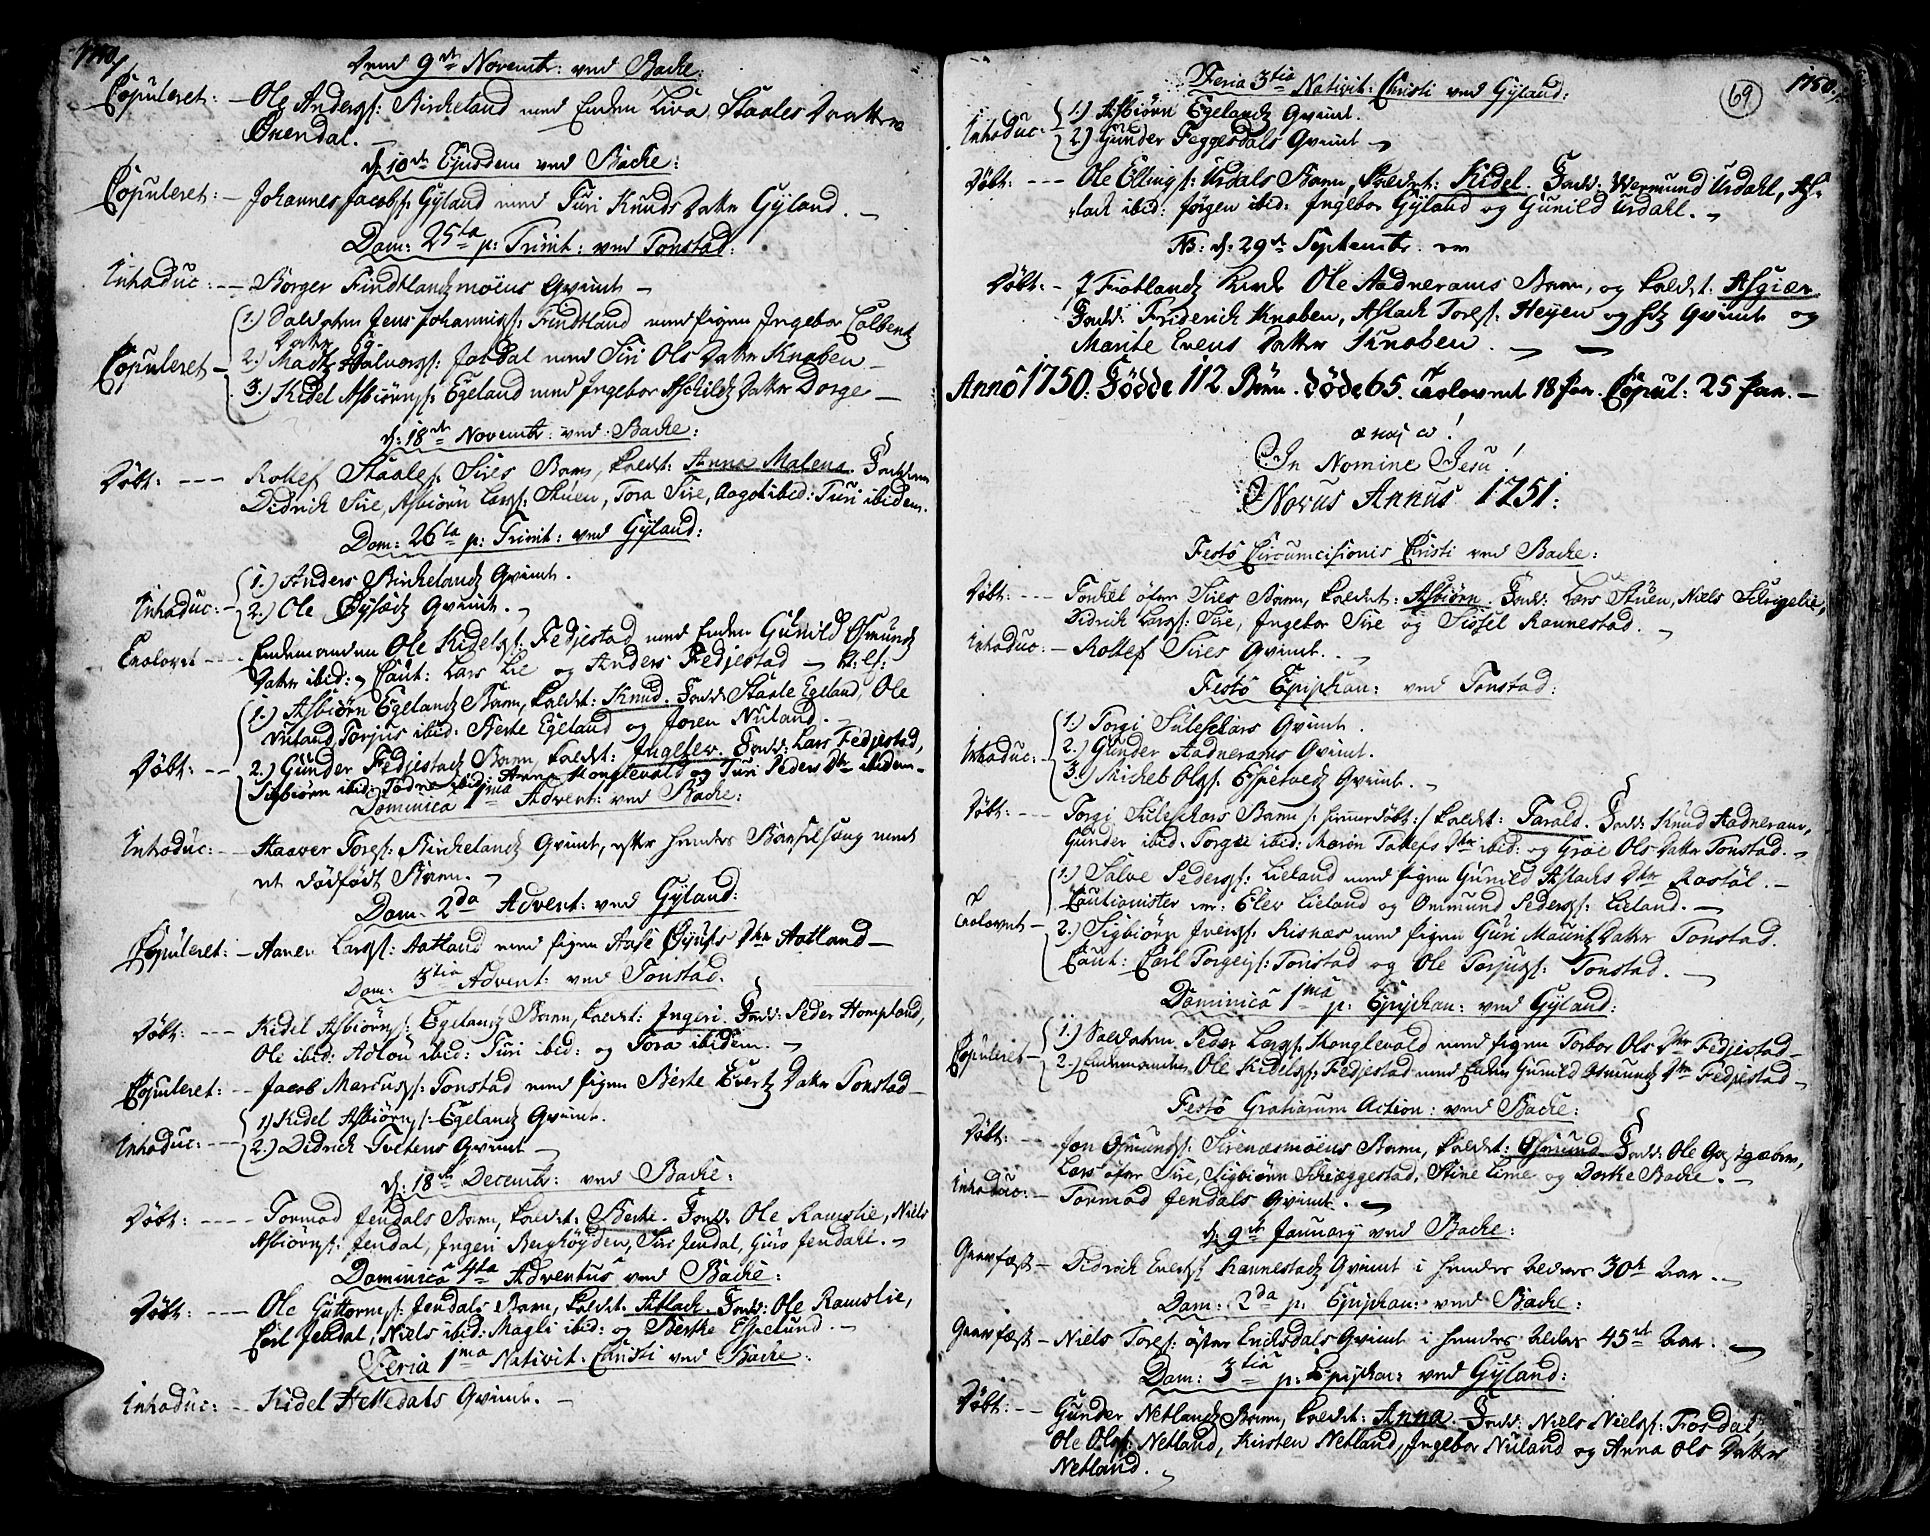 1750
Dend 9de Novembr: ved Backe:
Copuleret: - Ole Anders: Birkeland med Enken Liva Staales Datter
Ørendal. -
d: 10de Ejusdem ved Backe:
Copuleret: - Johannes Jacobs: Gyland med Turi Knuds Datter Gyland. -
Dom: 25ta p: Trinit: ved Tonstad:
Introduc: - Børger Findtlandzmoens Qvinde -
1.) Soldaten Jens Johannis: Findtland med Pigen Ingebor Colbentz
Datter
Copuleret - 2.) Madtz Halvors: Josdal med Siri Ols Datter Knaben -
3.) Kidel Asbiørns: Egeland med Ingebor Aschildz Datter Dorge -
d: 18de Novembr: ved Backe:
Døbt: --- Rollef Staales: Sires Barn, kaldet: Anna Malena. Fadd:
Didrich Sire, Asbiørn Lars: Stuen, Tora Sire, Aagot ibid: Turi ibidem.
Dom: 26ta p: Trinit: ved Gyland:
1.) Anders Birkelandz Qvinde.
Introduc: - 2.) Ole Øysædz Qvinde. -
Trolovet --- Enkemanden Ole Kidels: Fedjestad med Enken Gunild Osmundz
Datter ibid: Caut: Lars Lie og Anders Fedjestad -
1.) Asbiørn Egelandz Barn, kaldet: Knud. Fadd: Staale Egeland, Ole
Nuland, Torjus ibid: Berte Egeland og Joren Nuland. -
Døbt: -- 2.) Gunder Fedjestadz Barn, kaldet: Ingeler. Fadd: Lars Fedjestad,
Sigbiørn ibid: Todne ibid: Anna Konglevold og Turi Peders Dtr ibidem. -
Dominica 1ma Advent: ved Backe:
Introduc: - Staaver Tores: Birkelandz Qvinde, efter hendes Barselseng med
et dødfødt Barn. -
Dom: 2da Advent: ved Gyland:
Copuleret: - Aanen Lars: Aatland med Pigen Aase Øyufs Dtr Aatland -
Dom: 3tia Advent: ved Tonstad.
Døbt: --- Kidel Asbiørns: Egelandz Barn, kaldet: Ingeri. Fadd: Peder Hompland,
Ole ibid: Adlou ibid: Turi ibid: og Tora ibidem. -
Copuleret: - Jacob Marcus: Tonstad med Pigen Berte Evertz Datter Tonstad -
1) Kidel Asbiørns: Egelandz Qvinde.
Introduc: --- 2.) Didrich Tvetens Qvinde -
d: 18de Decembr: ved Backe:
Døbt: ---- Tormod Jendals Barn, kaldet: Berte. Fadd: Ole Ramslie, Niels
Asbiørns: Jendal, Ingeri Berghøyden, Siri Jendal, Guro Jendahl. -
Dominica 4ta Adventus ved Backe:
Døbt: --- Ole Guttorms: Jendals Barn, kaldet: Atlack. Fadd: Ole Ramslie,
Carl Jendal, Niels ibid: Magli ibid: og Berte Espelund. -
Feria 1ma Nativit: Christi ved Backe:
Introduc: - Kidel Helledals Qvinde. -
69
1750.
Feria 3tia Nativit: Christi ved Gyland:
Introduc: 1.) Asbiørn Egelandz Qvinde.
2.) Gunder Feggesdals Qvinde -
Døbt: --- Ole Ellings: Urdals Barn, kaldet: Kidel. Fadd: Wermund Urdahl, As-
lack ibid: Jørgen ibid: Ingebor Gyland og Gunild Urdahl. -
NB: d: 29de Septembr. er
Døbt: - I Fiotland Kirke Ole Aadnerams Barn, og kaldet: Asgier.
Fadd: Friderich Knaben, Aslack Tores: Heyen og hs: Qvinde og
Marite Evens Datter Knaben. -
Anno 1750. Fødde 112 Børn. døde 65. Trolovet 18 Par. Copul: 25 Par. -
In Nomine Jesu!
Novus Annus 1751:
Festo Circumcisionis Christi ved Backe:
Døbt: --- Torkel øfre Sires Barn, kaldet: Asbiørn. Fadd: Lars Stuen, Niels Selvigelie,
Didrich Lars: Sire, Ingebor Sire og Sissel Rannestad. -
Introduc: - Rollef Sires Qvinde. -
Festo Epiphan: ved Tonstad:
1.) Torgi Suleskars Qvinde.
Introduc: - 2.) Gunder Aadnerams Qvinde.
3.) Michel Ols: Espetvedz Qvinde. -
Døbt: --- Torgi Suleskars Barn /: hiemmedøbt:/ kaldet: Tarald. Fadd: Knud Aadneram,
Gunder ibid: Torgie ibid: Maron Tollefs Dtr ibid: og Groe Ols Datter Tonstad. -
1.) Salve Peders: Lieland med Pigen Gunild Aslachs Dtr Rostøl. -
Cautionister er: Elev Lieland og Ommund Peders: Lieland. -
Trolovet - 2.) Sigbiørn Ivers: Risnæs med Pigen Guri Mauritz Datter Tonstad.
Caut: Carl Torgeis: Tonstad og Ole Torjus: Tonstad. -
Dominica 1ma p: Epiphan: ved Gyland:
Copuleret - 1.) Soldaten Peder Lars: Konglevold med Pigen Torbor Ols Dtr Fedjestad -
2.) Enkemanden Ole Kidels: Fedjestad med Enken Gunild Osmundz Dtr Fedjestad -
Festo Gratiarum Action: ved Backe:
Døbt: --- Jon Osmunds: Sirenæsmoens Barn, kaldet: Osmund. Fadd: Ole
Lars øfre Sire, Sigbiørn Skræggestad, Stine Lerne og Dorte Backe. -
Introduc: - Tormod Jendals Qvinde. -
d: 9de January ved Backe:
Gravfæst - Didrich Evers: Rannestadz Qvinde i hendes alders 30te Aar. -
Dom: 2da p: Epiphan: ved Backe:
Gravfæst - Niels Tores: øfre Endresdals Qvinde i hendes alders 45de Aar. -
Dom: 3tia p: Epiphan: ved Gyland:
Døbt: --- Gunder Netlandz Barn, kaldet: Anna. Fadd: Niels Niels: Trosdal,
Ole Ols: Netland, Kirsten Netland, Ingebor Nuland og Anna Ols Datter
Netland. -